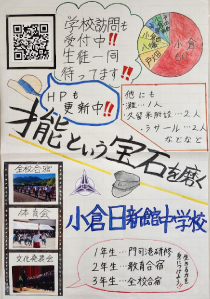 学校訪問も
受付中!!
生徒一同
待ってます!!
小倉
戸畑
HPも
更新中!!
他にも
灘…1人
久留米附設…2人
ラサール…2人
などなど
才能という宝石を磨く
全校合宿
体育会
文化発表会
小倉日新館中学校
1年生…門司港研修
2年生…教育合宿
3年生…全校合宿